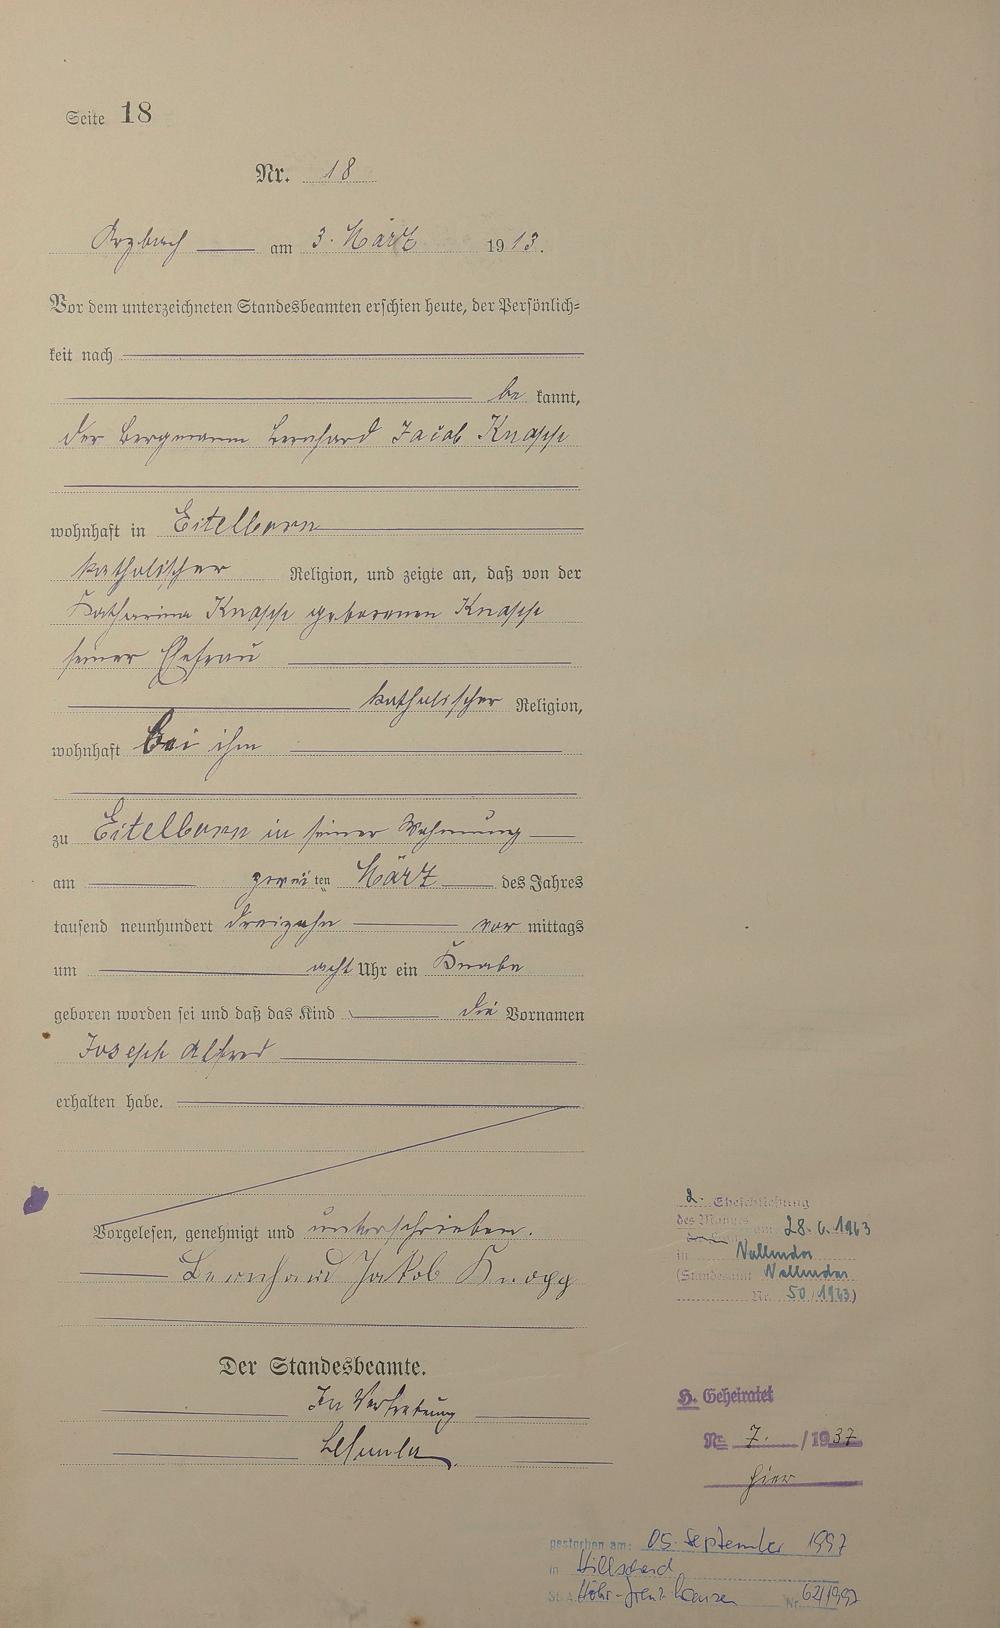 Seite 18
Nr. 18
Arzbach am 3. März 1913.
Vor dem unterzeichneten Standesbeamten erschien heute, der Persönlich=
keit nach
be kannt,
der Bergmann Bernhard Jacob Knopp
wohnhaft in Eitelborn
katholischer Religion, und zeigte an, daß von der
Katharina Knopp geborenen Knopp
seiner Ehefrau
katholischer Religion,
wohnhaft bei ihm
zu Eitelborn in seiner Wohnung
am zweiten März des Jahres
tausend neunhundert dreizehn vor mittags
um acht Uhr ein Knabe
geboren worden sei und daß das Kind die Vornamen
Joseph Alfred
erhalten habe.
Vorgelesen, genehmigt und unterschrieben.
Bernhard Jakob Knopp
Der Standesbeamte.
In Vertretung
2. Eheschließung
des Mannes am 28.6.1963
in Vallendar
(Standesamt Vallendar
Nr. 50/1963)
H. Geheiratet
Nr. 7. /1937
hier
gestorben am: 05. September 1997
in Hillscheid
St.A. Höhr-Grenzhausen Nr. 62/1997